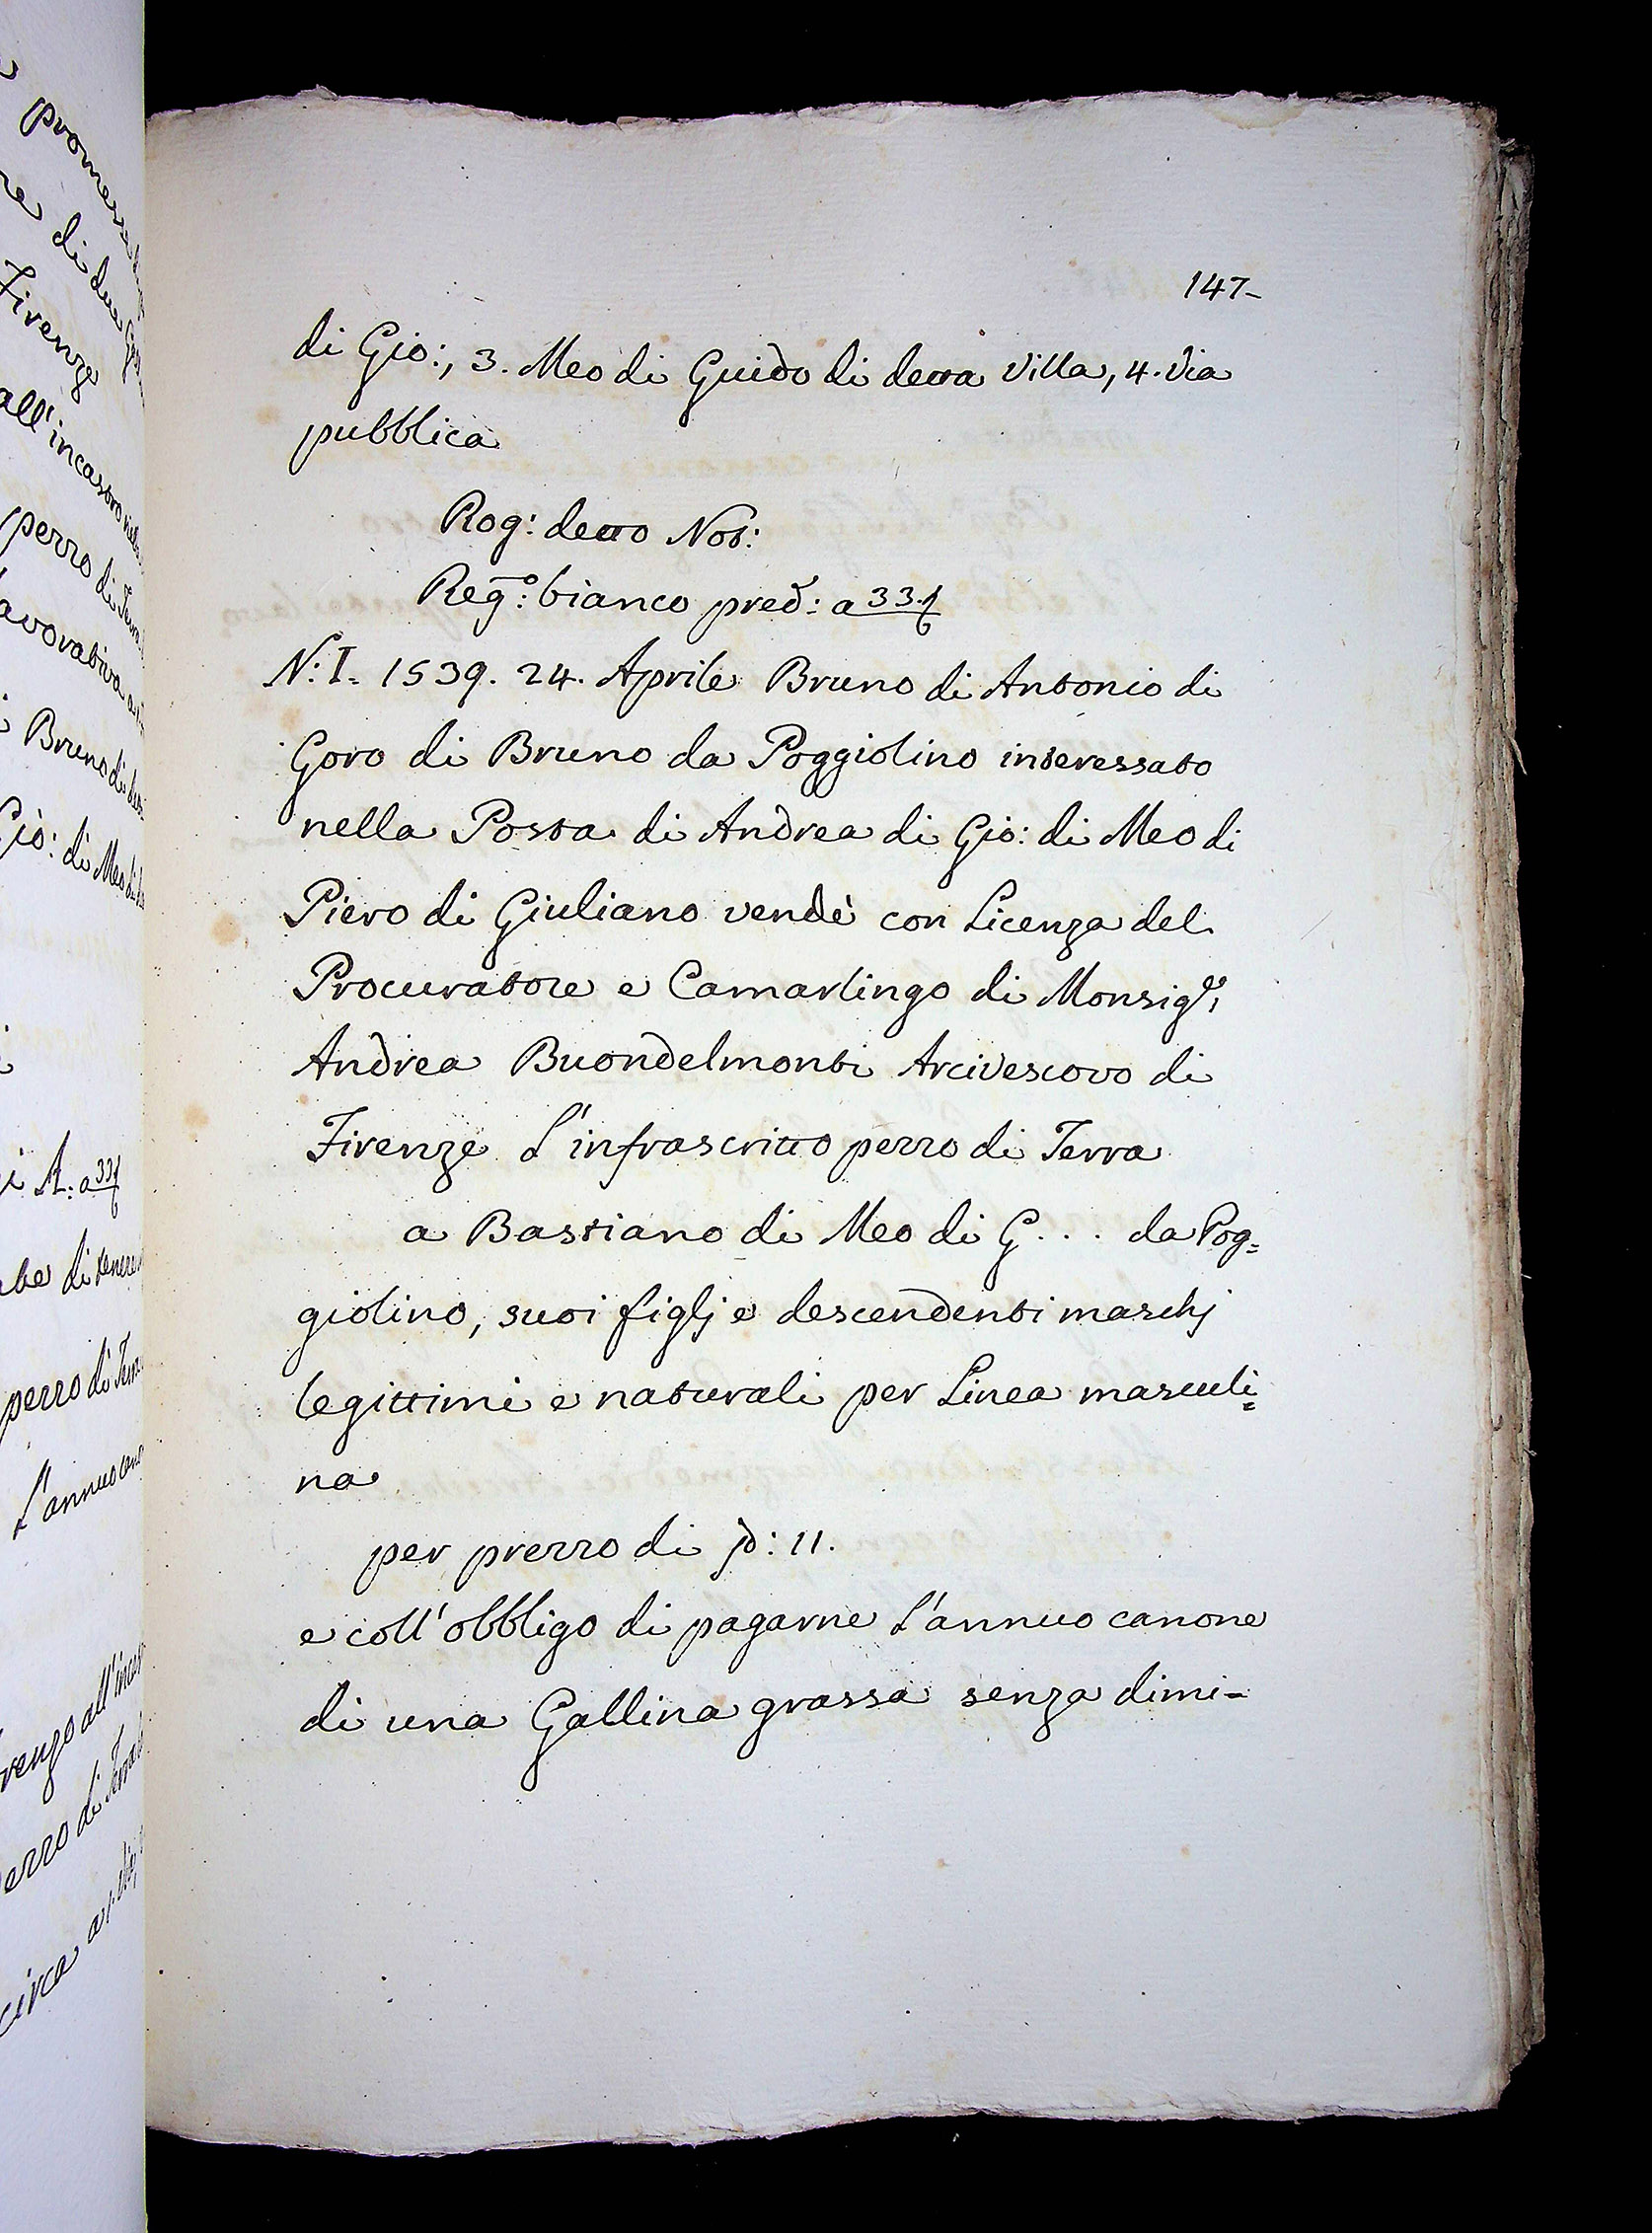 147-
di Gio:, 3. Meo di Guido di detta Villa, 4. Via
pubblica
Rog: detto Not:
Reg.o: bianco pred: a 33.t
N: I. 1539. 24. Aprile Bruno di Antonio di
Goro di Bruno da Poggiolino interessato
nella Posta di Andrea di Gio: di Meo di
Piero di Giuliano vendè con Licenza del
Procuratore e Camarlingo di Monsig.r
Andrea Buondelmonti Arcivescovo di
Firenze L'infrascritto pezzo di Terra
a Bastiano di Meo di G... da Pog=
giolino, suoi figlj e descendenti maschj
legittimi e naturali per Linea masculi=
na
per prezzo di : 11.
e coll'obbligo di pagarne L'annuo canone
di una Gallina grassa senza dimi-
promene
di due
Firenze
all'incastro
pezzo di
Bruno di
Gio: di Meo
di tenere
pezzo di
L'annuo
circa